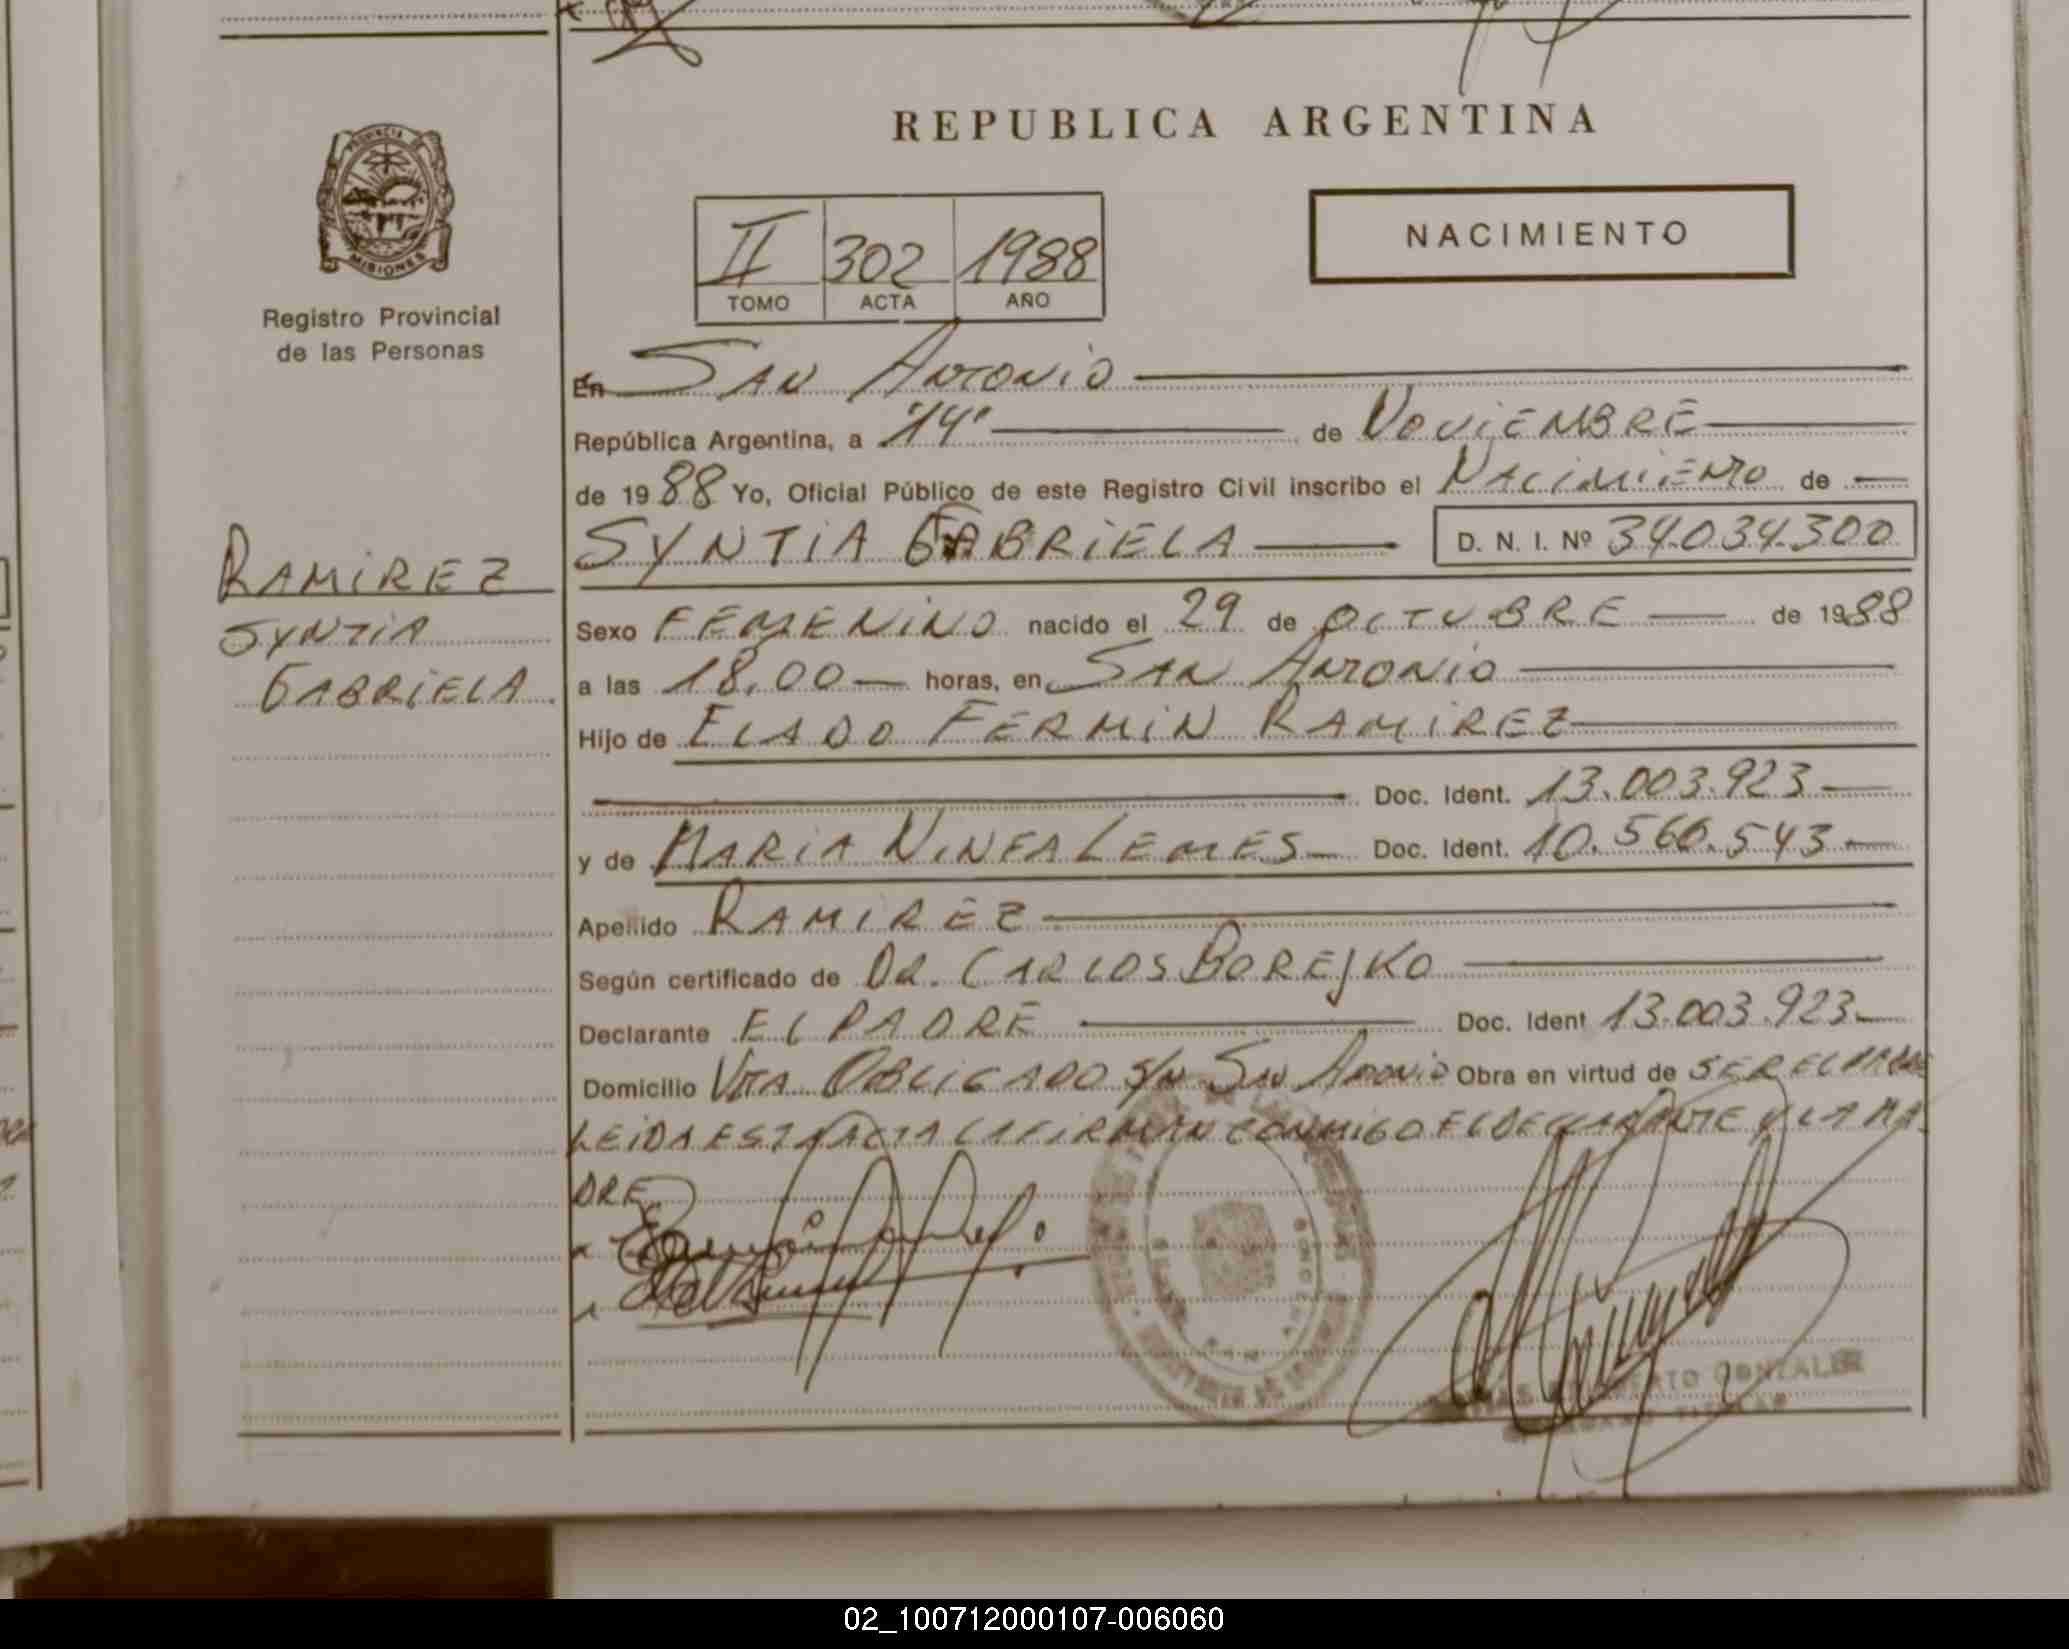 REPUBLICA ARGENTINA
PROVINCIA DE
MISIONES
Registro Provincial
de las Personas
II 302 1988
TOMO ACTA AÑO
NACIMIENTO
En SAN ANTONIO
República Argentina, a "14" de NOVIEMBRE
de 1988 Yo, Oficial Público de este Registro Civil inscribo el NACIMIENTO de
SYNTIA GABRIELA D. N. I. Nº 34.034.300
RAMIREZ
SYNTIA
GABRIELA
Sexo FEMENINO nacido el 29 de OCTUBRE de 1988
a las 18,00 horas, en SAN ANTONIO
Hijo de ELADO FERMIN RAMIREZ
Doc. Ident. 13.003.923
y de MARIA NINFA LEMES Doc. Ident. 10.560.543
Apellido RAMIREZ
Según certificado de DR. CARLOS BOREJKO
Declarante EL PADRE Doc. Ident 13.003.923
Domicilio VTA OBLIGADO S/N SAN ANTONIO Obra en virtud de SER EL PADRE
LEIDA ESTA ACTA LA FIRMAN CONMIGO EL DECLARANTE Y LA MA-
DRE
GONZALEZ
TITULAR
02_100712000107-006060